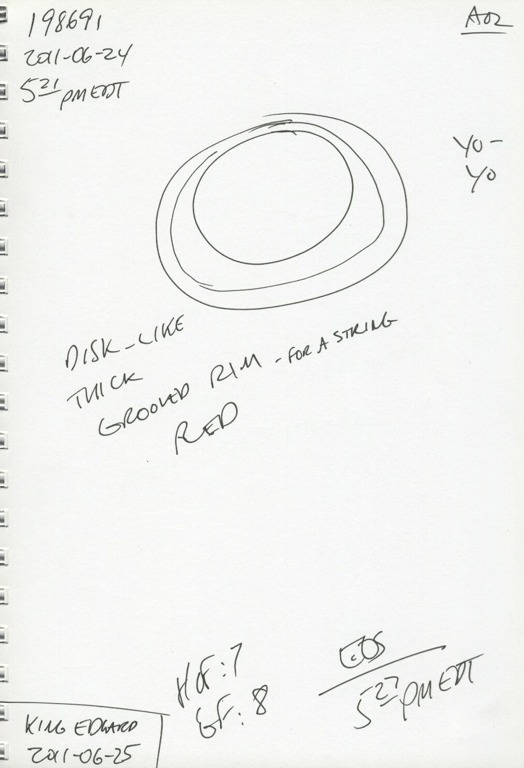 198691
A02
2011-06-24
5 21 PM EDT
YO-
YO
DISK-LIKE
THICK
GROOVED RIM - FOR A STRING
RED
HF:7
GF:8
EOS
5 27 PM EDT
KING EDWARD
2011-06-25